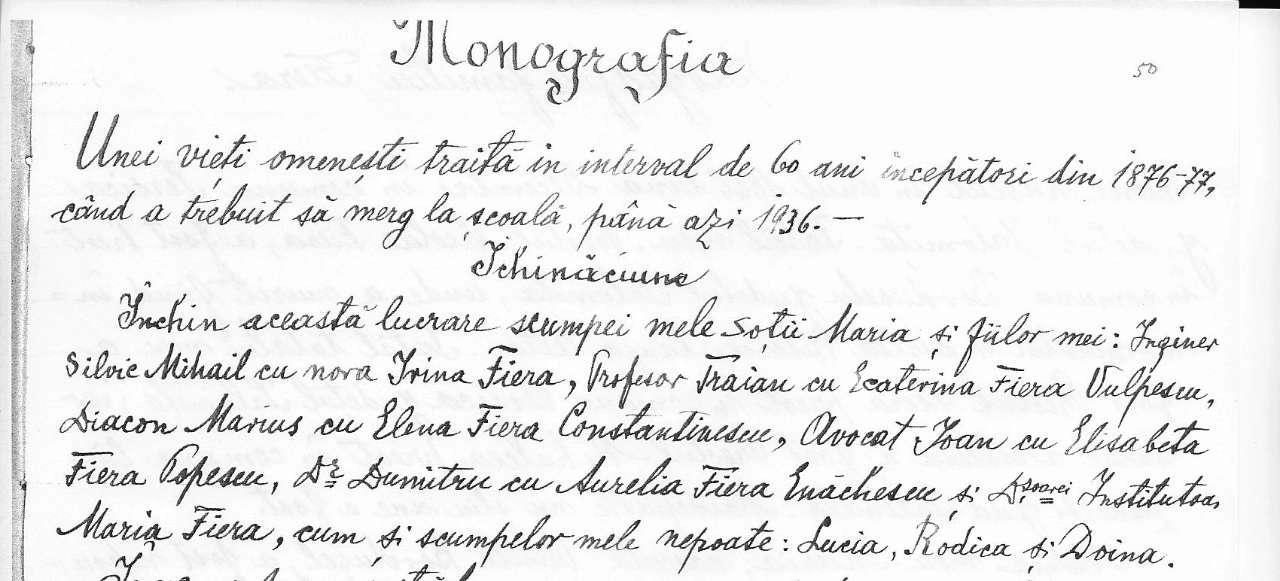 Monografia
50
Unei vieți omenești traită in interval de 60 ani începători din 1876-77,
când a trebuit să merg la școală, până azi 1936.—
Ichinăciune
Închin această lucrare scumpei mele soții Maria și fiilor mei: Inginer
Silvic Mihail cu nora Irina Fiera, Profesor Traian cu Ecaterina Fiera Vulpescu,
Diacon Marius cu Elena Fiera Constantinescu, Avocat Ioan cu Elisabeta
Fiera Popescu, Dr Dumitru cu Aurelia Fiera Enăchescu și Dșoarei Institutoa
Maria Fiera, cum și scumpelor mele nepoate: Lucia, Rodica și Doina.